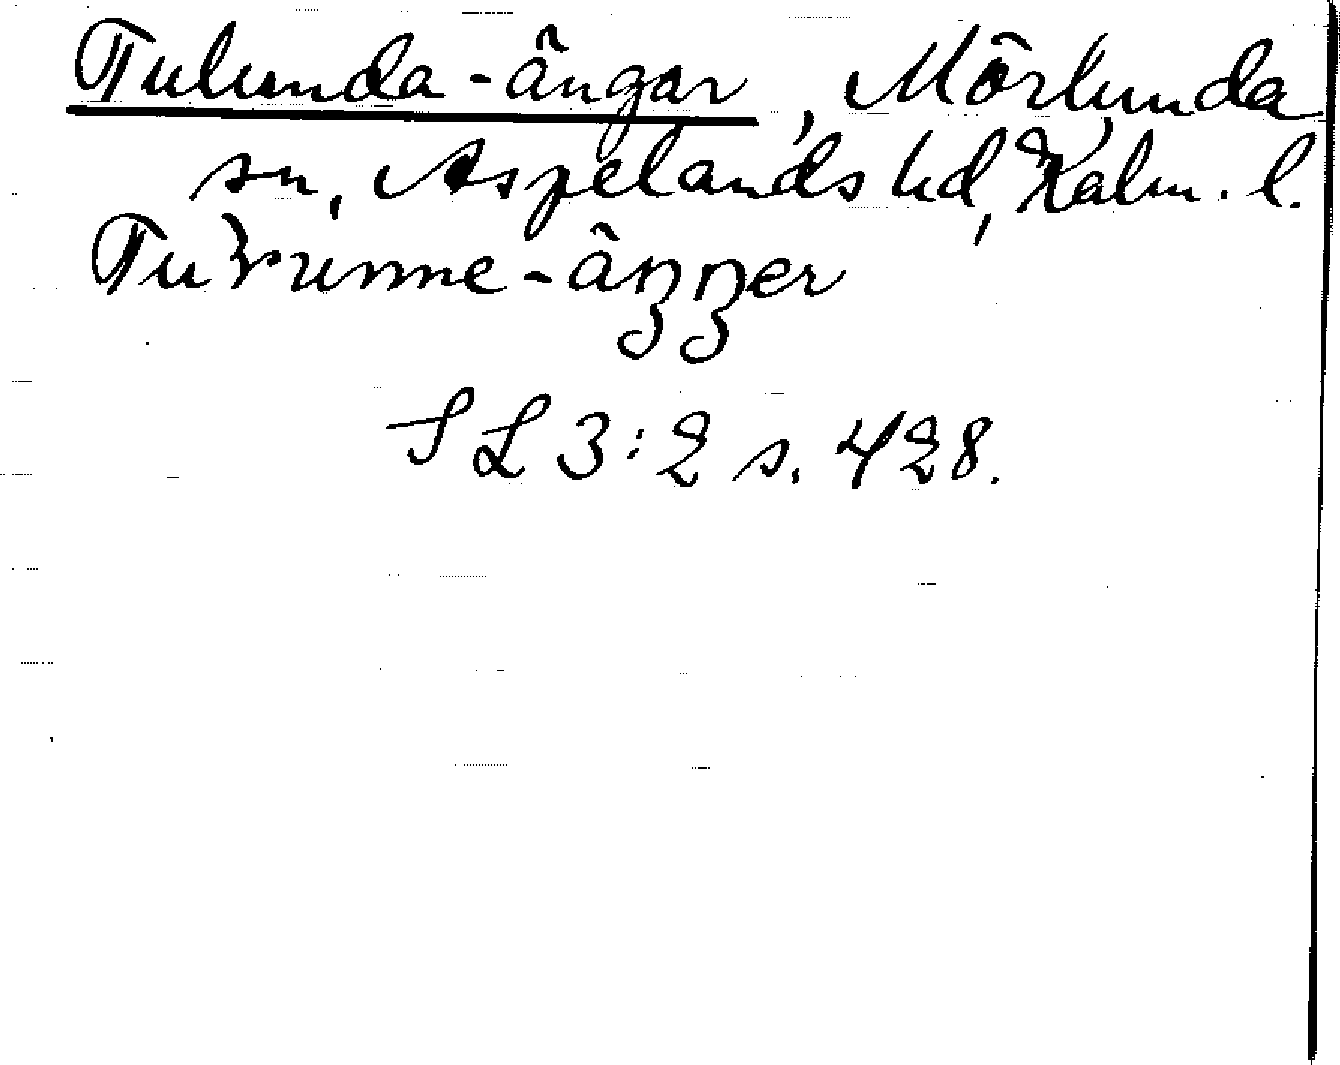 Tulunda-ängar, Mörlunda
sn, Aspelands hd, Kalm. l.
SL 3:2 s. 428.